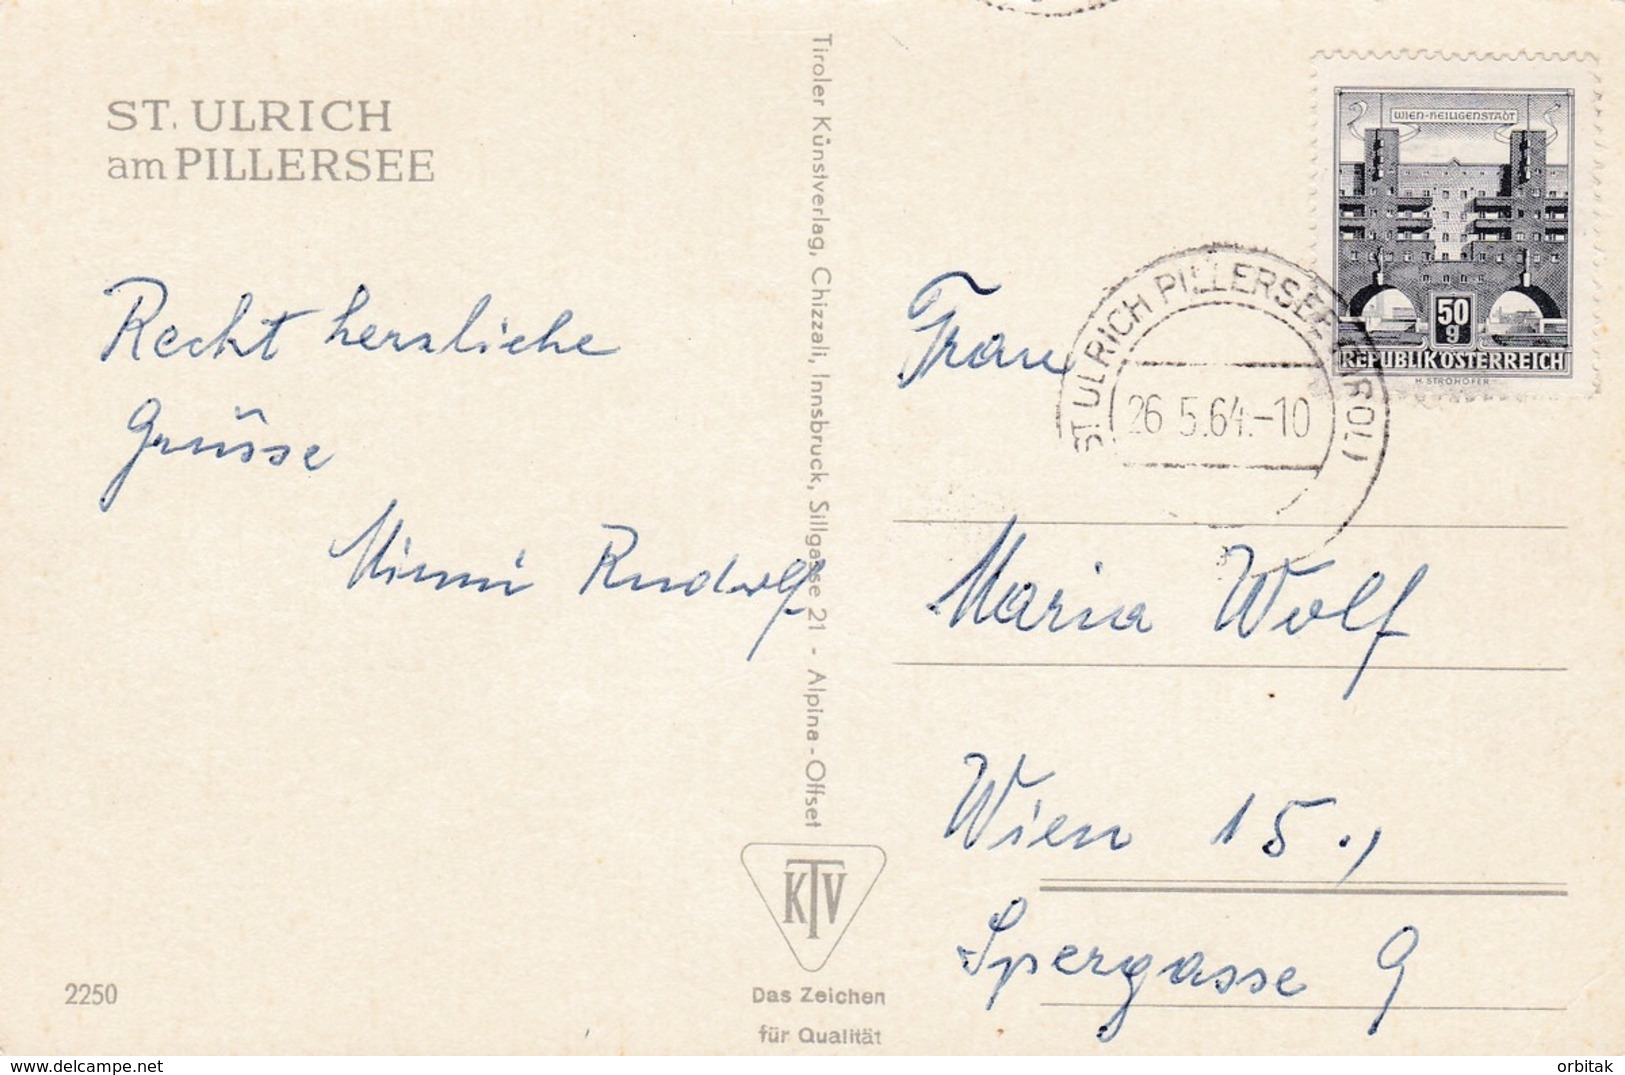 ST. ULRICH
am PILLERSEE
Recht herzliche
Grüsse
Mimi Rudolf
2250
Tiroler Künstverlag, Chizzali, Innsbruck, Sillgasse 21 - Alpina-Offset
KTV
Das Zeichen
für Qualität
WIEN-HEILIGENSTADT
50
g
REPUBLIK ÖSTERREICH
H. STROHOFER
ST. ULRICH PILLERSEE (TIROL)
26.5.64.-10
Frau
Maria Wolf
Wien 15.,
Spergasse 9
delcampe.net
orbitak